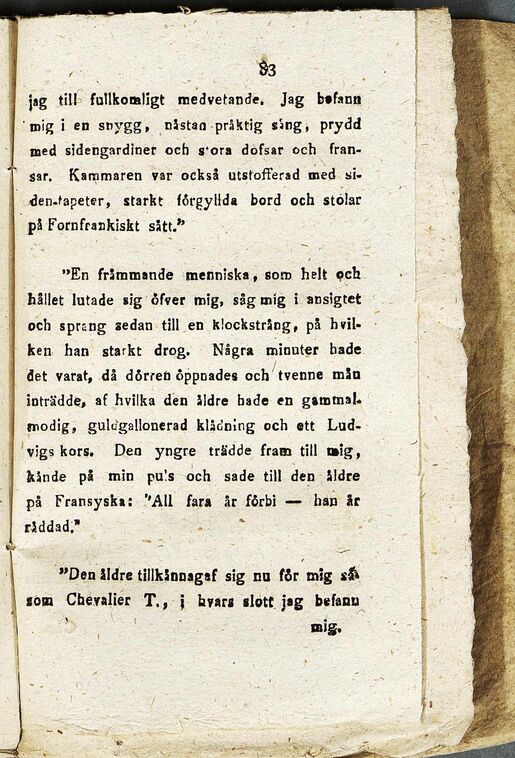 83
jag till fullkomligt medvetande. Jag befann
mig i en snygg, nästan präktig säng, prydd
med sidengardiner och stora dofsar och fran-
sar. Kammaren var också utstofferad med si-
den-tapeter, starkt förgyllda bord och stolar
på Fornfrankiskt sätt."
"En främmande menniska, som helt och
hållet lutade sig öfver mig, såg mig i ansigtet
och sprang sedan till en klocksträng, på hvil-
ken han starkt drog. Några minuter hade
det varat, då dörren öppnades och tvenne män
inträdde, af hvilka den äldre hade en gammal-
modig, guldgallonerad klädning och ett Lud-
vigs kors. Den yngre trädde fram till mig,
kände på min puls och sade till den äldre
på Fransyska: "All fara är förbi — han är
räddad."
"Den äldre tillkännagaf sig nu för mig så
som Chevalier T., i hvars slott jag befann
mig.